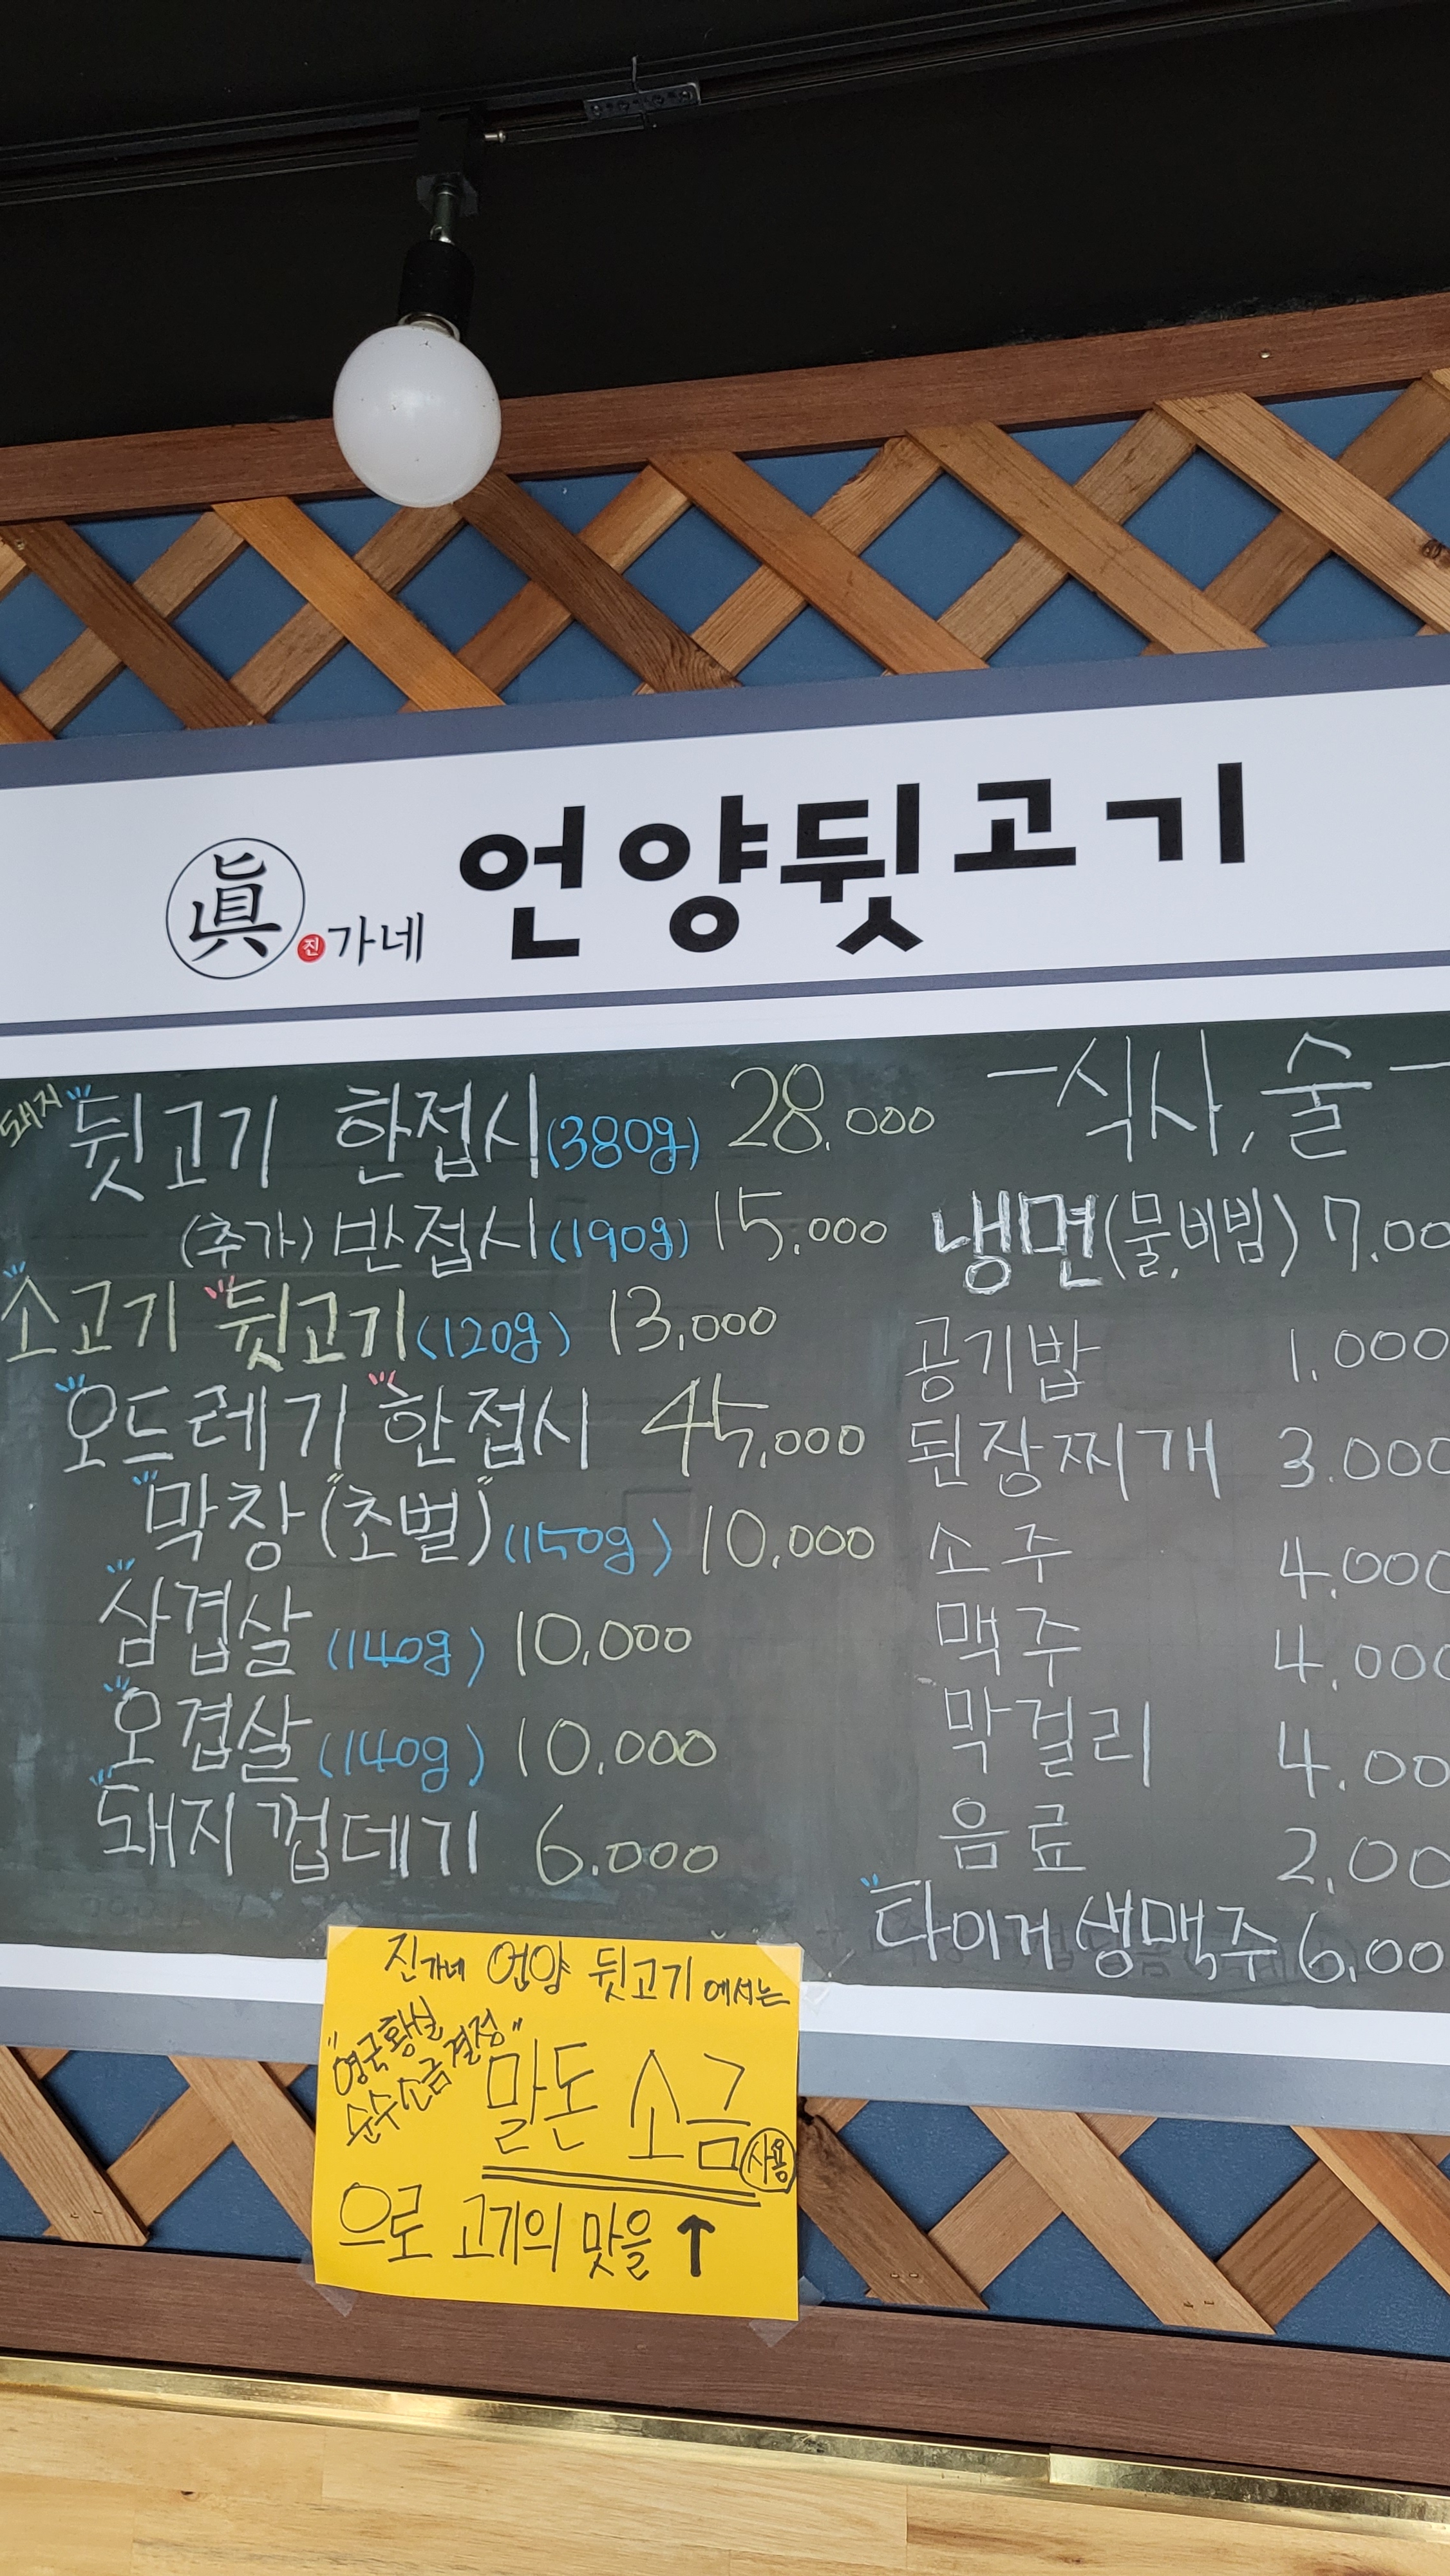 眞 진가네 언양뒷고기
돼지 "뒷고기 한접시(380g) 28.000
(추가) 반접시(190g) 15.000
"소고기 "뒷고기(120g) 13,000
"오드레기 "한접시 45,000
"막창("초벌")(150g) 10,000
"삼겹살 (140g) 10,000
"오겹살 (140g) 10,000
"돼지껍데기 6.000
-식사, 술-
냉면(물,비빔) 7.00
공기밥 1.000
된장찌개 3.000
소주 4.000
맥주 4.000
막걸리 4.00
음료 2,00
"타이거 생맥주 6,00
진가네 언양 뒷고기에서는
"영국황실
순수소금결정"
말돈 소금 사용
으로 고기의 맛을 ↑